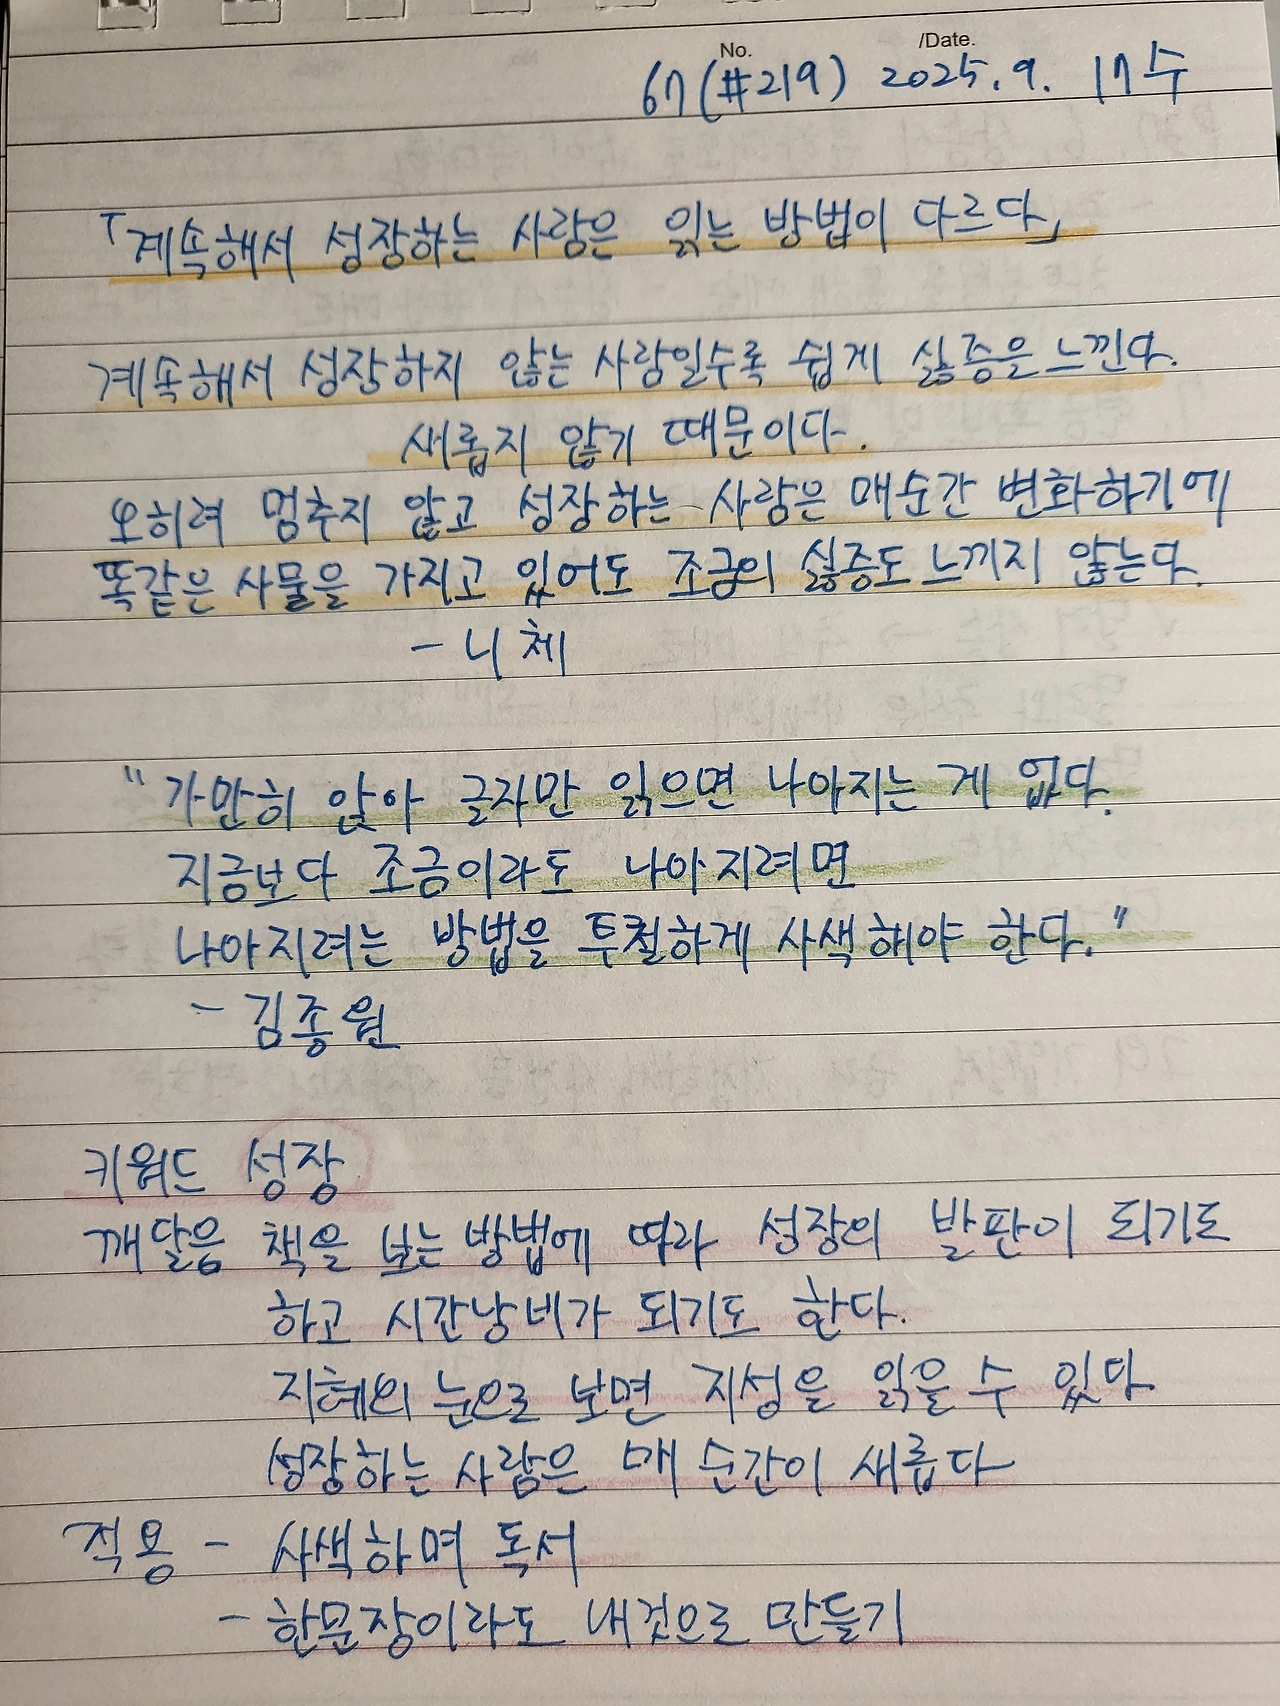 No. /Date.
67(#219) 2025.9. 17 수
「계속해서 성장하는 사람은 읽는 방법이 다르다」
계속해서 성장하지 않는 사람일수록 쉽게 싫증을 느낀다.
새롭지 않기 때문이다.
오히려 멈추지 않고 성장하는 사람은 매순간 변화하기에
똑같은 사물을 가지고 있어도 조금의 싫증도 느끼지 않는다.
- 니체
"가만히 앉아 글자만 읽으면 나아지는 게 없다.
지금보다 조금이라도 나아지려면
나아지려는 방법을 투철하게 사색해야 한다."
- 김종원
키워드 성장
깨달음 책을 보는 방법에 따라 성장의 발판이 되기도
하고 시간낭비가 되기도 한다.
지혜의 눈으로 보면 지성을 읽을 수 있다
성장하는 사람은 매 순간이 새롭다
적용 - 사색하며 독서
- 한문장이라도 내것으로 만들기